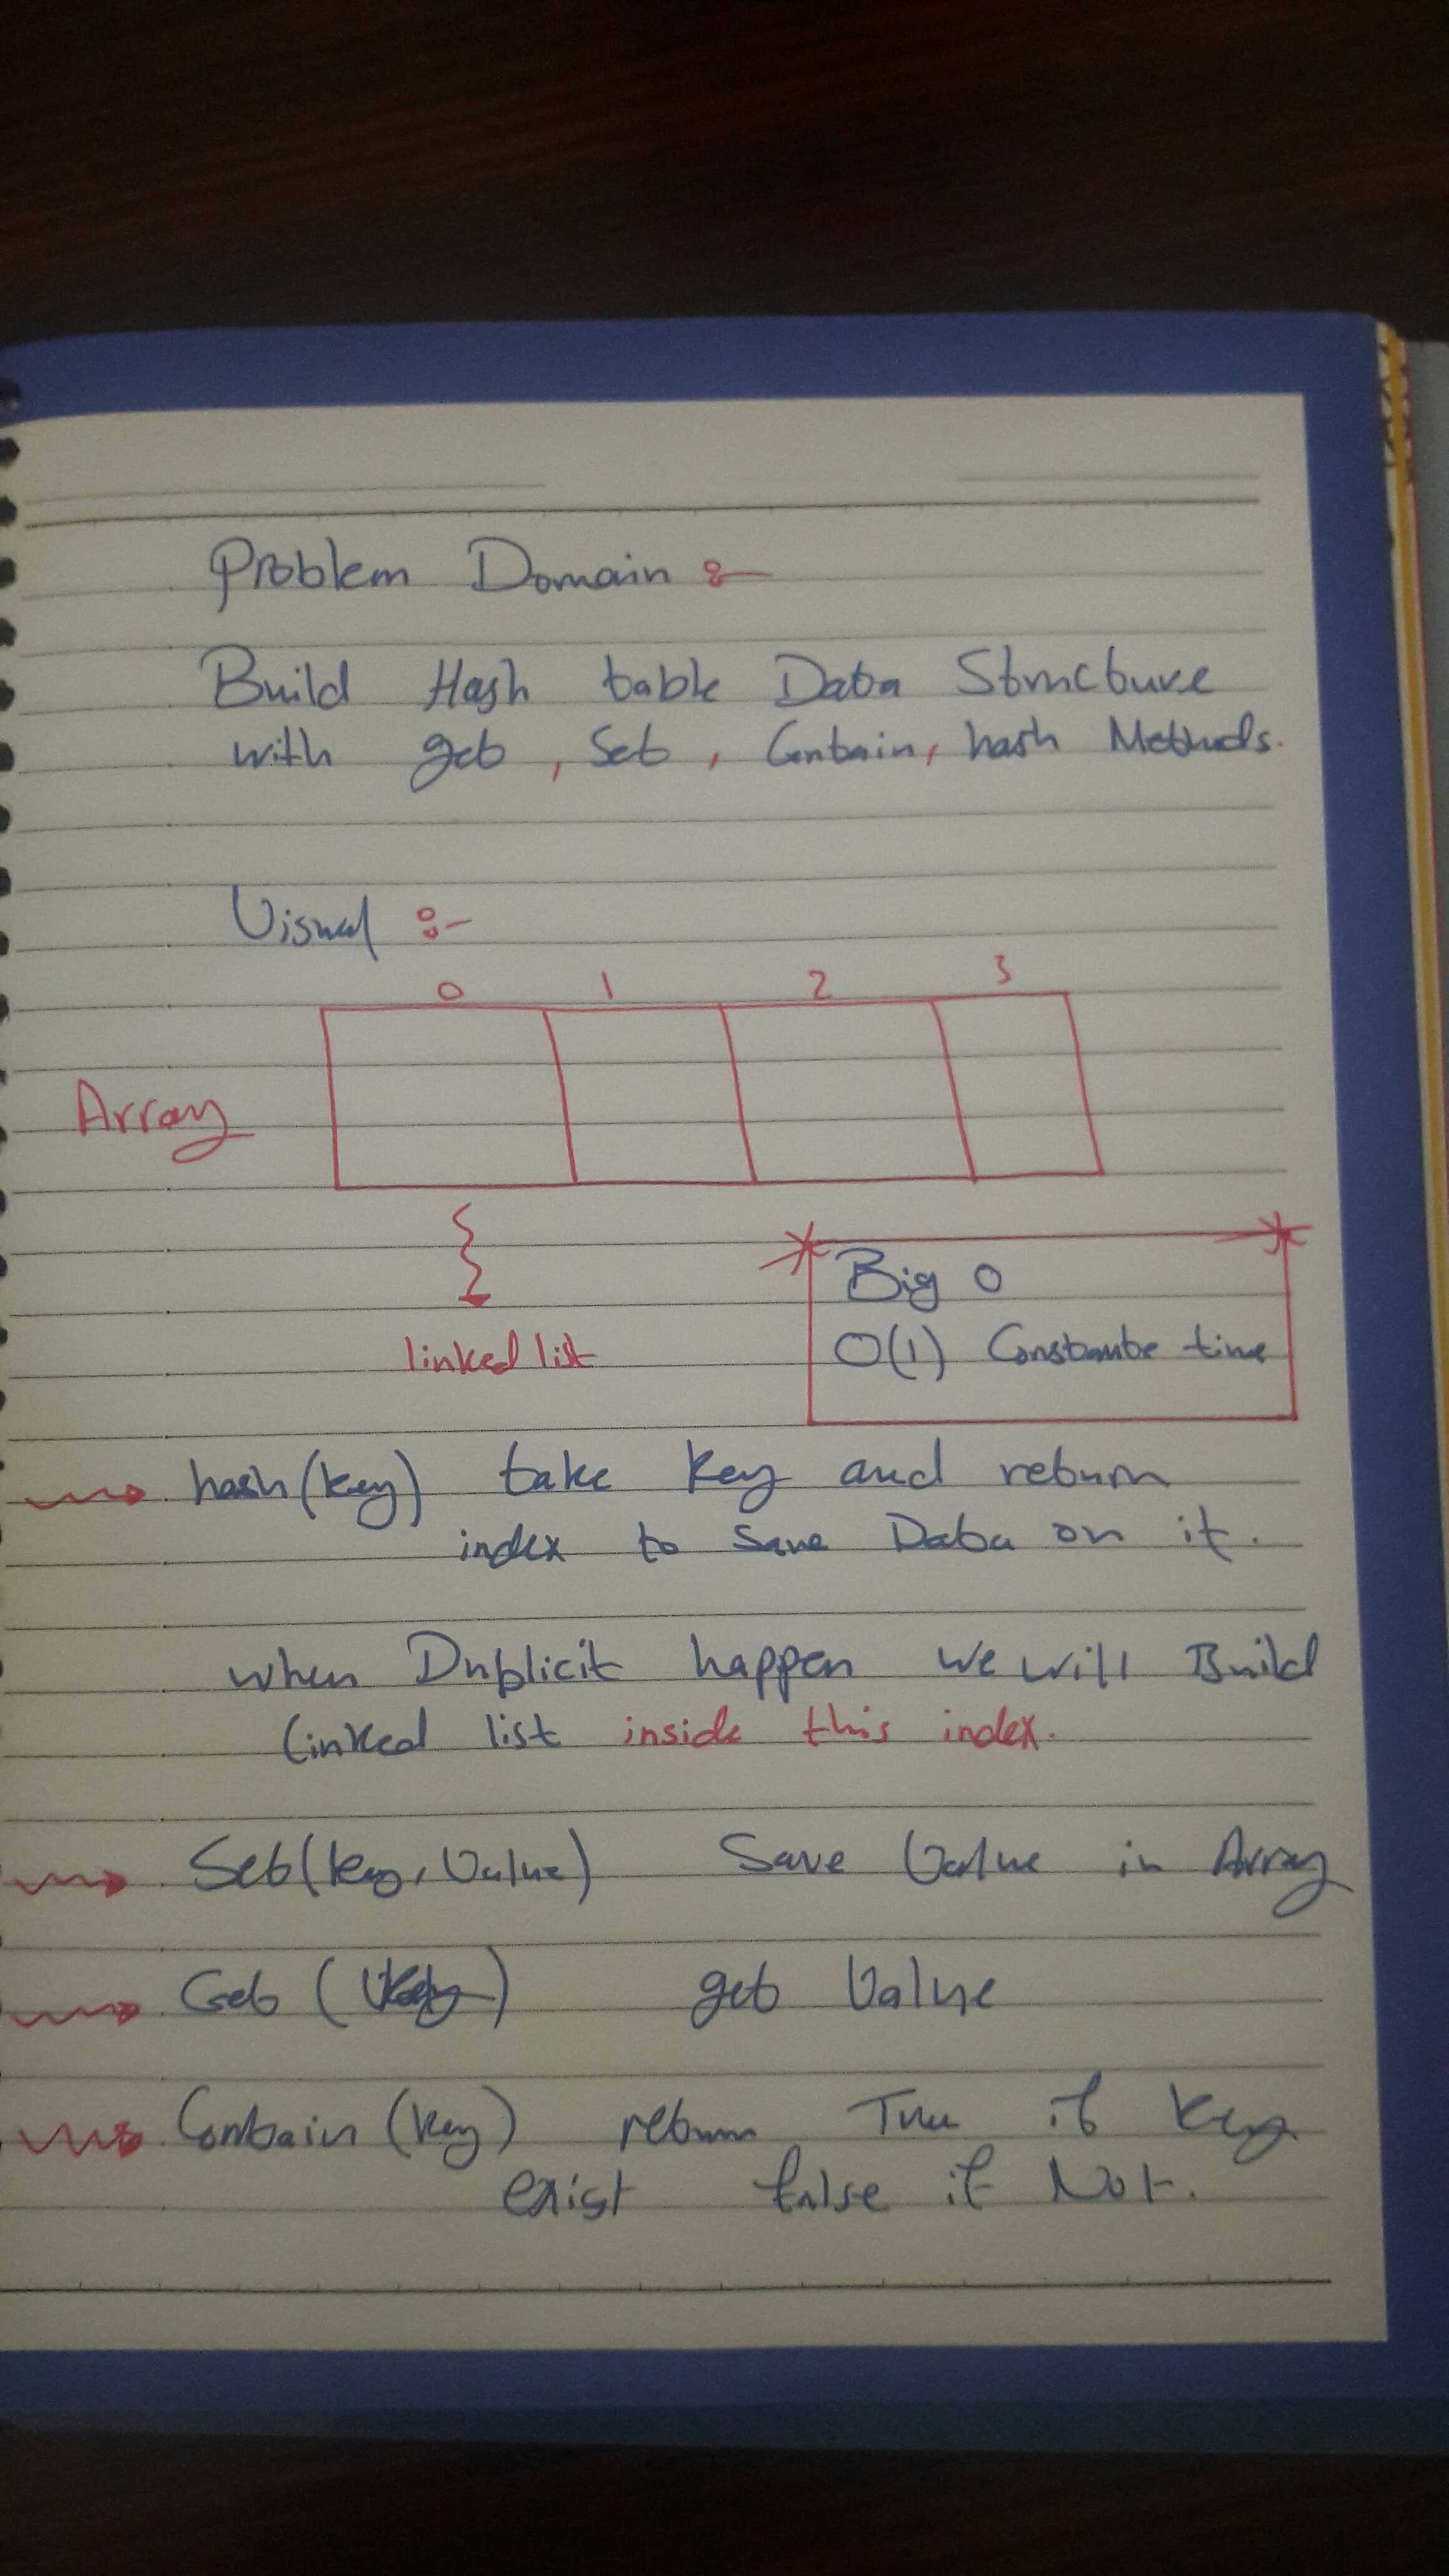 Problem Domain :-
Build Hash table Data Structure
with get, Set, Contain, hash Methods.
Visual :-
0 1 2 3
Array
linked list
Big O
O(1) Constante time
hash(key) take key and return
index to save Data on it.
when Duplicit happen we will Build
linked list inside this index.
Set(key, Value) Save Value in Array
Get (key) get Value
Contain (key) return True if key
exist false if Not.